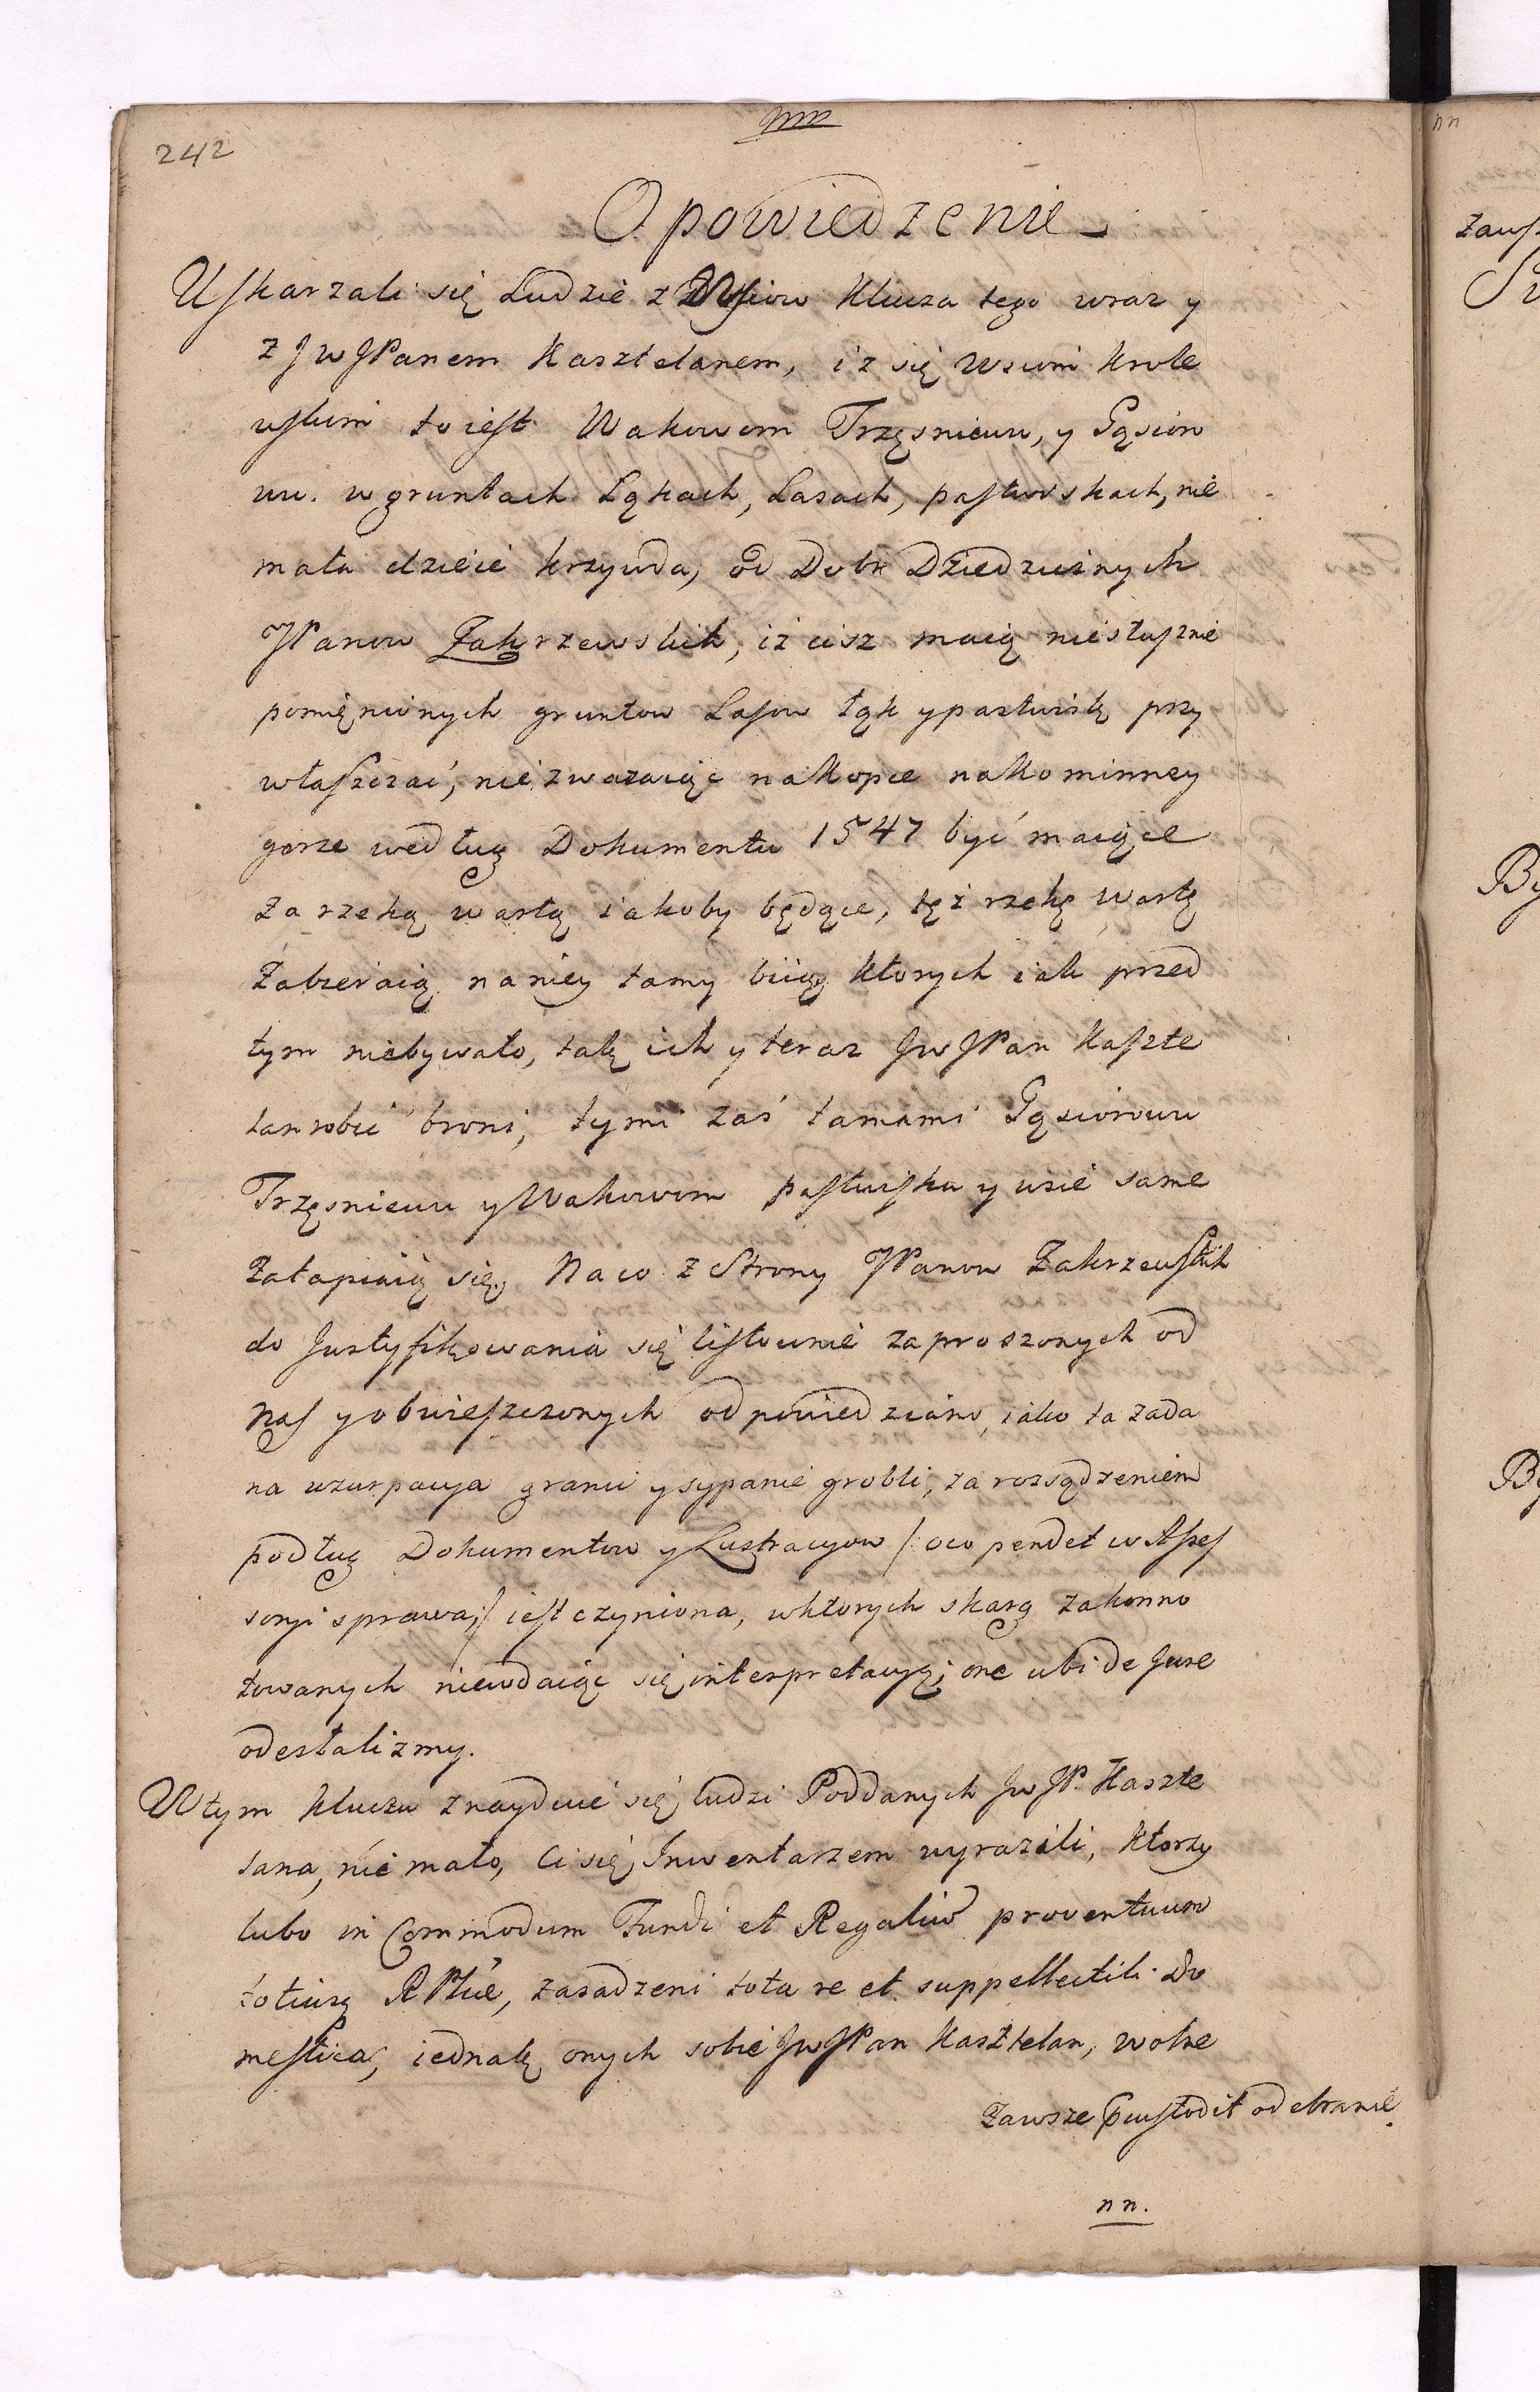 nn
242
Opowiedzenie
Uskarzali się Ludzie z Wsiow Klucza tego wraz y
z JW JPanem Kasztelanem, iz się Wsiom Krole
wskim to iest Wakowom Trzęsniewu, y Gąsioro
wu. w gruntach Łąkach, Lasach, pastwskach, nie
mała dzieie krzywda, od Dobr Dziedzicznych
JPanow Zakrzewskich, iż cisz maią niesłusznie
pomięnionych gruntow Lasow łąk y pastwisk przy
właszczać, nie zwazaiąc na Kopce na Kominney
gorze według Dokumentu 1547 być maiące
za rzeką wartą iakoby będące, tęż rzekę wartę
Zabieraią na niey tamy biią, ktorych iak przed
tym niebywało, tak ich y teraz JW JPan Kaszte
lan robić broni, tymi zaś tamami Gąsiorowu
Trzęsniewu y Wakowom pastwiska y wsie same
Zatapiaią się, Na co z Strony JPanow Zakrzewskich
do Justyfikowania się listownie zaproszonych od
Nas y obwieszczonych odpowiedziano, iako ta zada
na uzurpacya granic y sypanie grobli, za rozsądzeniem
podług Dokumentow y Lustracyow /: oco pendet w Asses
soryi sprawa :/ iest czyniona, w ktorych skarg zakonno
towanych niewdaiąc się interpretacyą, one ubi de Jure
odestalizmy.
W tym Kluczu znayduie się ludzi Poddanych JW JP. Kaszte
lana, nie mało, Ci się Inwentarzem wyrazili, ktorzy
lubo in Commodum Fundi et Regaliu proventuum
totiusq RPlice, zasadzeni tota re et suppellectili do
mestica, iednak onych sobie JW JPan Kasztelan, wolne
Zawsze Custodit odebranie.
nn.